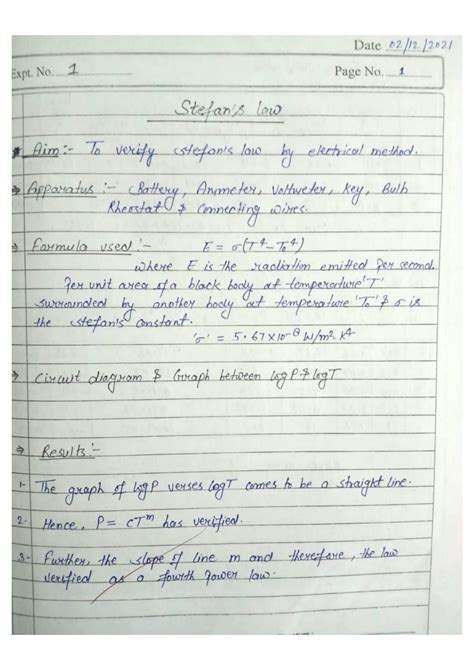 Date 02/12/2021
Expt. No. 1
Page No. 1
Stefan's law
* Aim:- To verify stefan's law by electrical method.
→ Apparatus :- Battery, Ammeter, Voltmeter, Key, Bulb
Rheostat & Connecting wires.
→ Formula used :- E = σ(T⁴-T₀⁴)
where E is the radiation emitted per second.
Per unit area of a black body at temperature 'T'
surrounded by another body at temperature 'T₀' & σ is
the stefan's constant.
'σ' = 5.67×10⁻⁸ W/m². K⁴
→ Circuit diagram & Graph between logP & logT
→ Results :-
1- The graph of logP verses logT comes to be a straight line.
2- Hence, P = CTᵐ has verified.
3- Further, the slope of line m and therefore, the law
verified as a fourth power law.